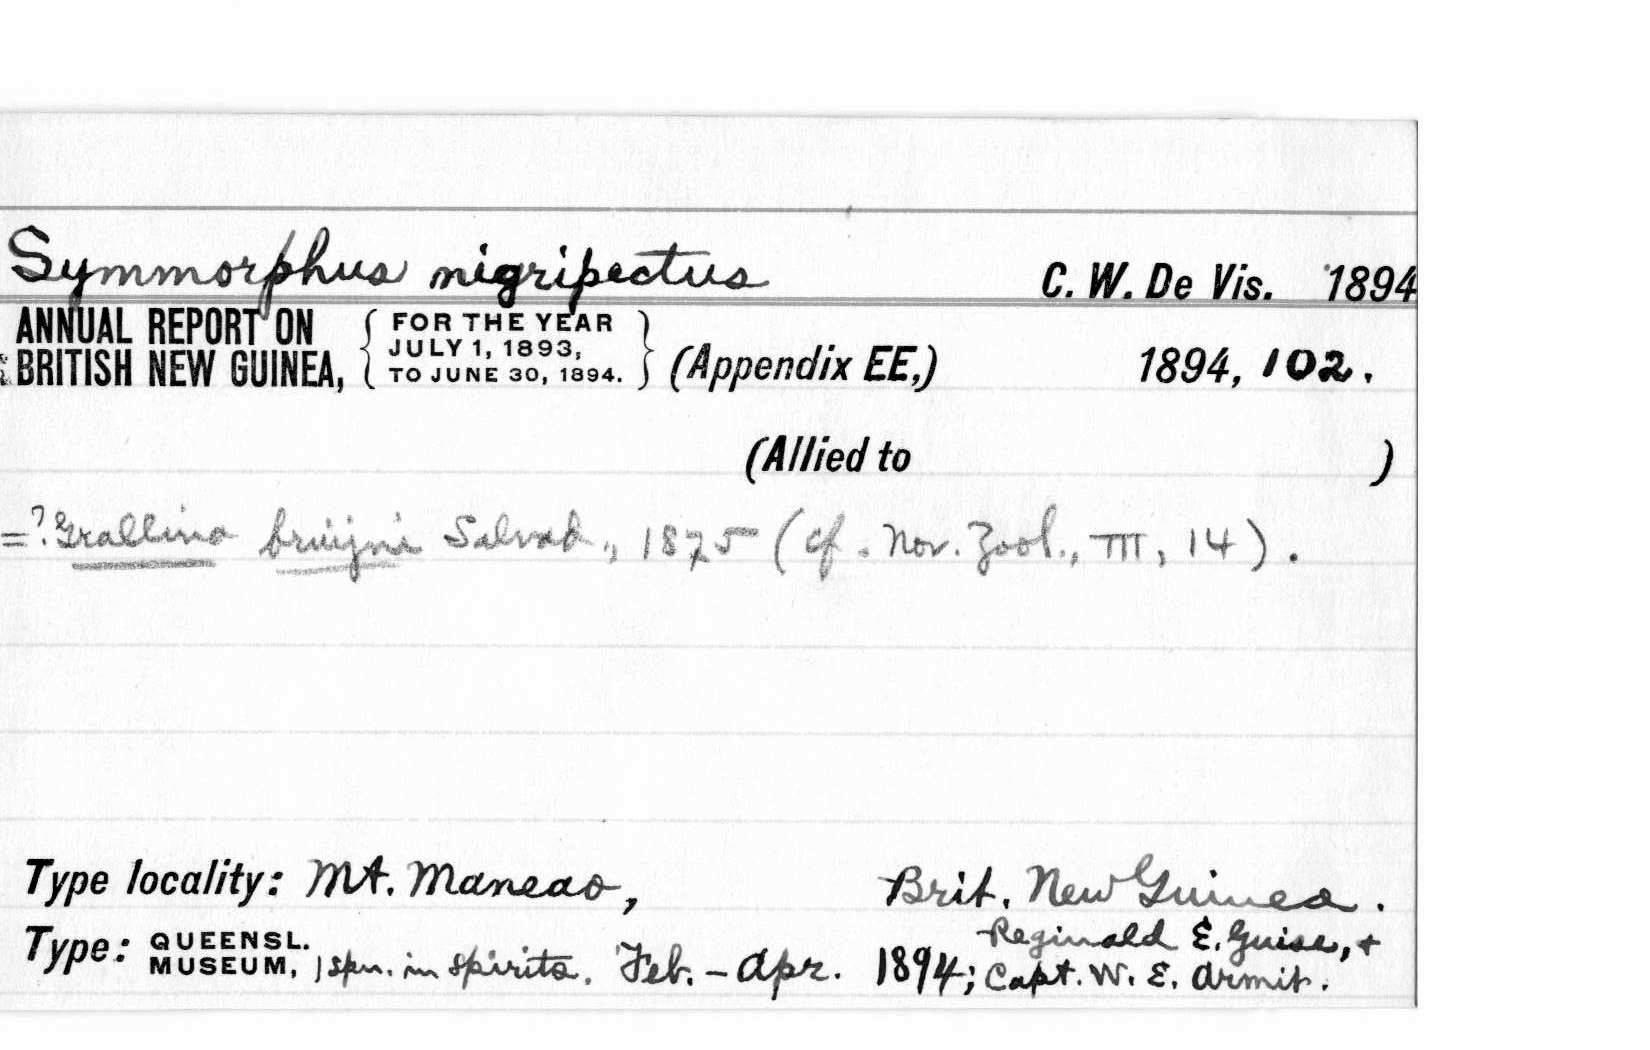 Symmorphus nigripectus C. W. De Vis. 1894
ANNUAL REPORT ON BRITISH NEW GUINEA, { FOR THE YEAR JULY 1, 1893, TO JUNE 30, 1894. } (Appendix EE,) 1894, 102.
(Allied to )
=? Grallina bruijni Salvad., 1875 (cf. Nov. Zool., III, 14).
Type locality: Mt. Maneao, Brit. New Guinea.
Type: QUEENSL. MUSEUM, 1 spn. in spirits. Feb. - Apr. 1894; Reginald E. Guise, + Capt. W. E. Armit.